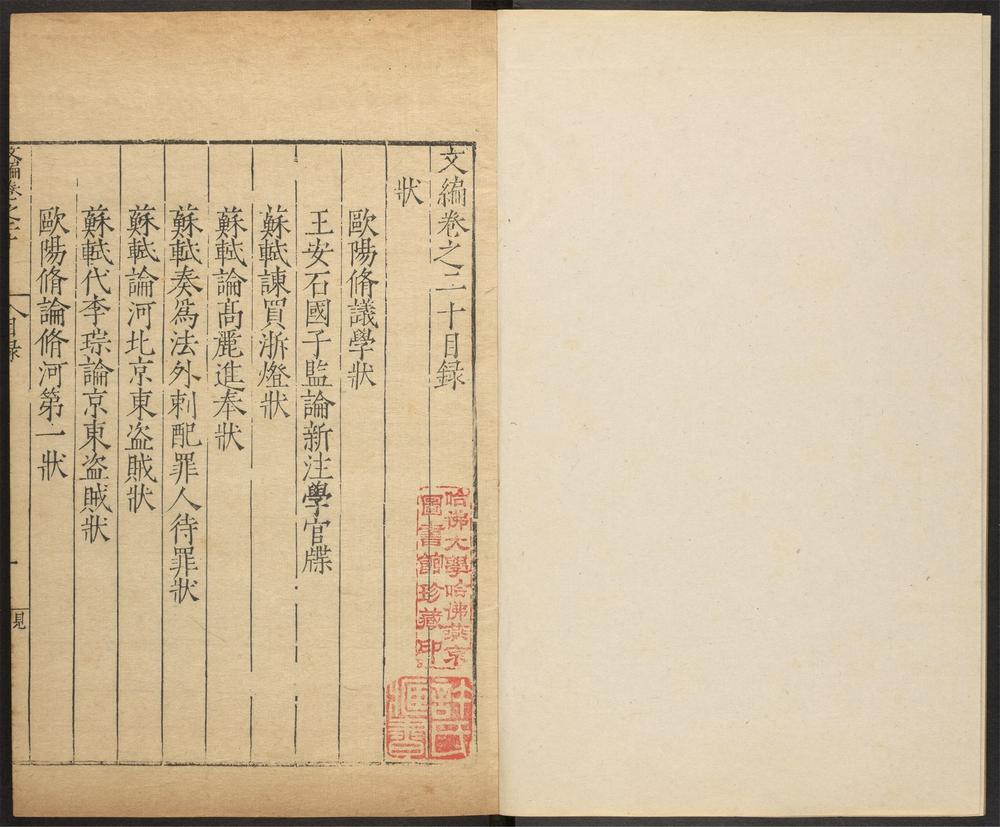 文編卷之二十目録
狀
歐陽脩議學狀
王安石國子監論新注學官牒
蘇軾諫買浙燈狀
蘇軾論髙麗進奉狀
蘇軾奏為法外刺配罪人待罪狀
蘇軾論河北京東盗賊狀
蘇軾代李琮論京東盗賊狀
歐陽脩論脩河第一狀
文編卷之二十
目録
一
哈佛大學哈佛燕京
圖書館珍藏印